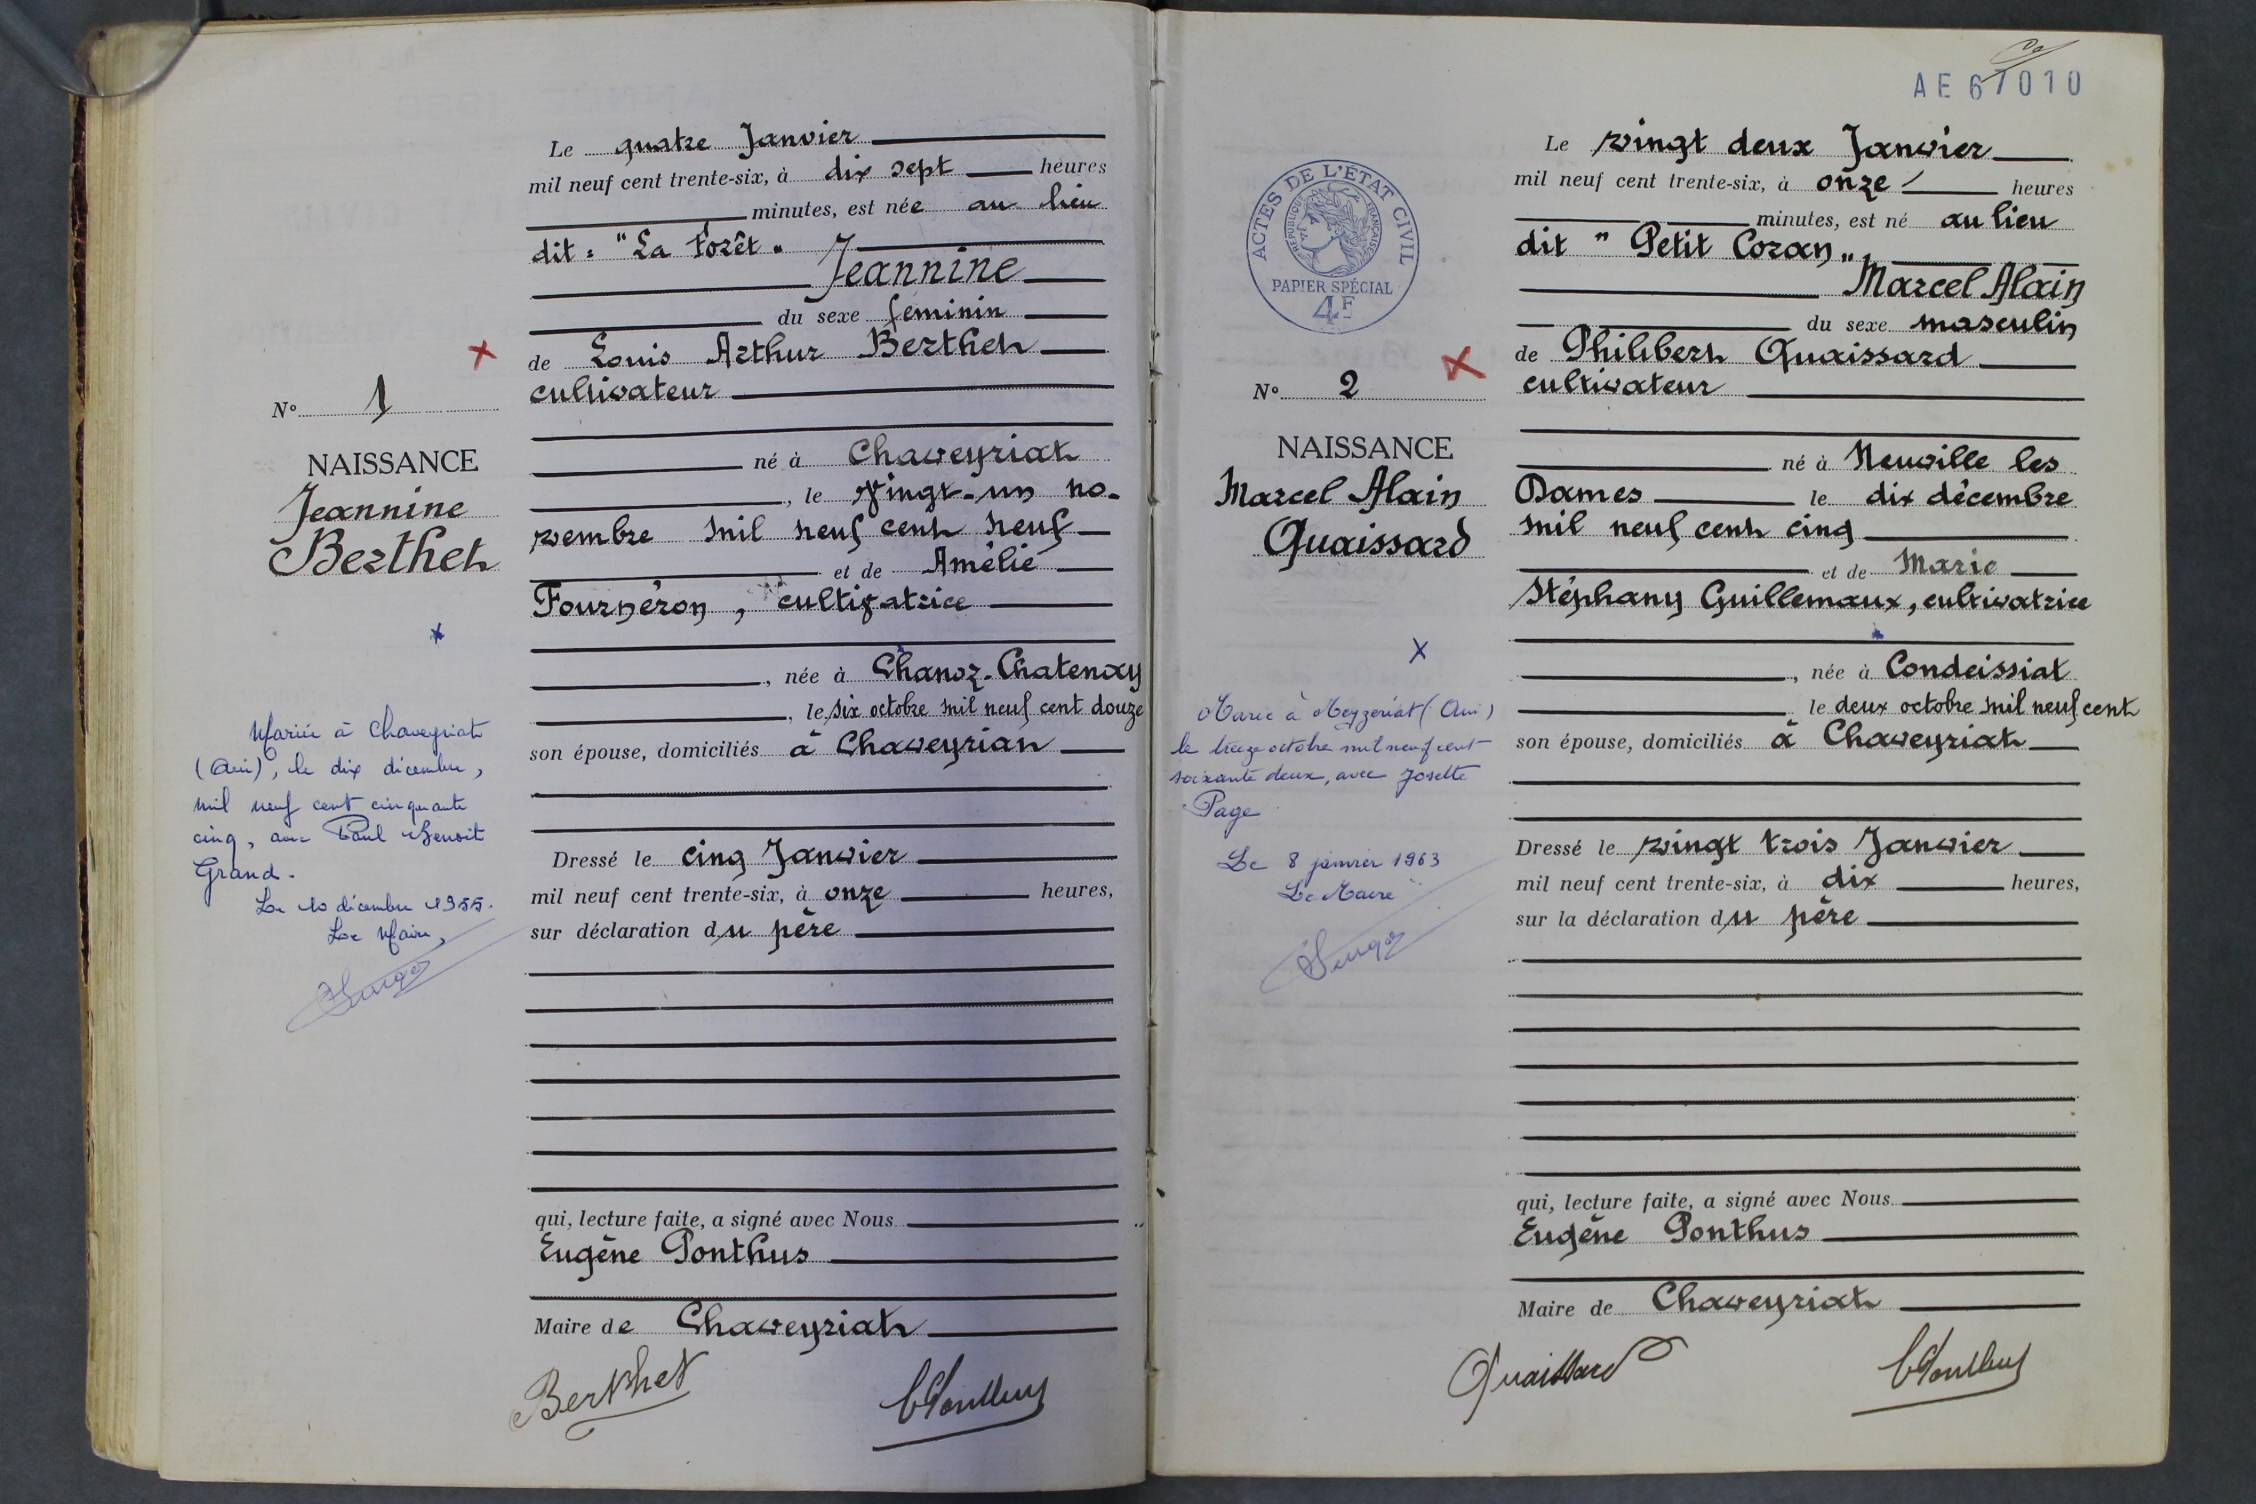 Le quatre Janvier
mil neuf cent trente-six, à dix sept heures
minutes, est née au lieu
dit : "La Forêt"
Jeannine
du sexe féminin
de Louis Arthur Berthet
cultivateur
né à Chaveyriat
, le vingt-un no-
vembre mil neuf cent neuf
et de Amélie
Fournéron, cultivatrice
, née à Chanoz-Chatenay
, le six octobre mil neuf cent douze
son épouse, domiciliés à Chaveyrian
Dressé le cinq Janvier
mil neuf cent trente-six, à onze heures,
sur déclaration du père
qui, lecture faite, a signé avec Nous
Eugène Ponthus
Maire de Chaveyriat
Berthet
EPonthus
N° 1
NAISSANCE
Jeannine
Berthet
Mariée à Chaveyriat
(Ain), le dix décembre,
mil neuf cent cinquante
cinq, avec Paul Benoit
Grand.
Le 10 décembre 1955.
Le Maire,
AE 67010
ACTES DE L'ETAT CIVIL
REPUBLIQUE FRANÇAISE
PAPIER SPÉCIAL
4F
Le vingt deux Janvier
mil neuf cent trente-six, à onze heures
minutes, est né au lieu
dit "Petit Coran"
Marcel Alain
du sexe masculin
de Philibert Quaissard
cultivateur
né à Neuville les
Dames le dix décembre
mil neuf cent cinq
et de Marie
Stéphany Guillemaux, cultivatrice
, née à Condeissiat
le deux octobre mil neuf cent
son épouse, domiciliés à Chaveyriat
Dressé le vingt trois Janvier
mil neuf cent trente-six, à dix heures,
sur la déclaration du père
qui, lecture faite, a signé avec Nous
Eugène Ponthus
Maire de Chaveyriat
Quaissard
EPonthus
N° 2
NAISSANCE
Marcel Alain
Quaissard
Marié à Mézériat (Ain)
le treize octobre mil neuf cent
soixante deux, avec Josette
Page
Le 8 janvier 1963
Le Maire